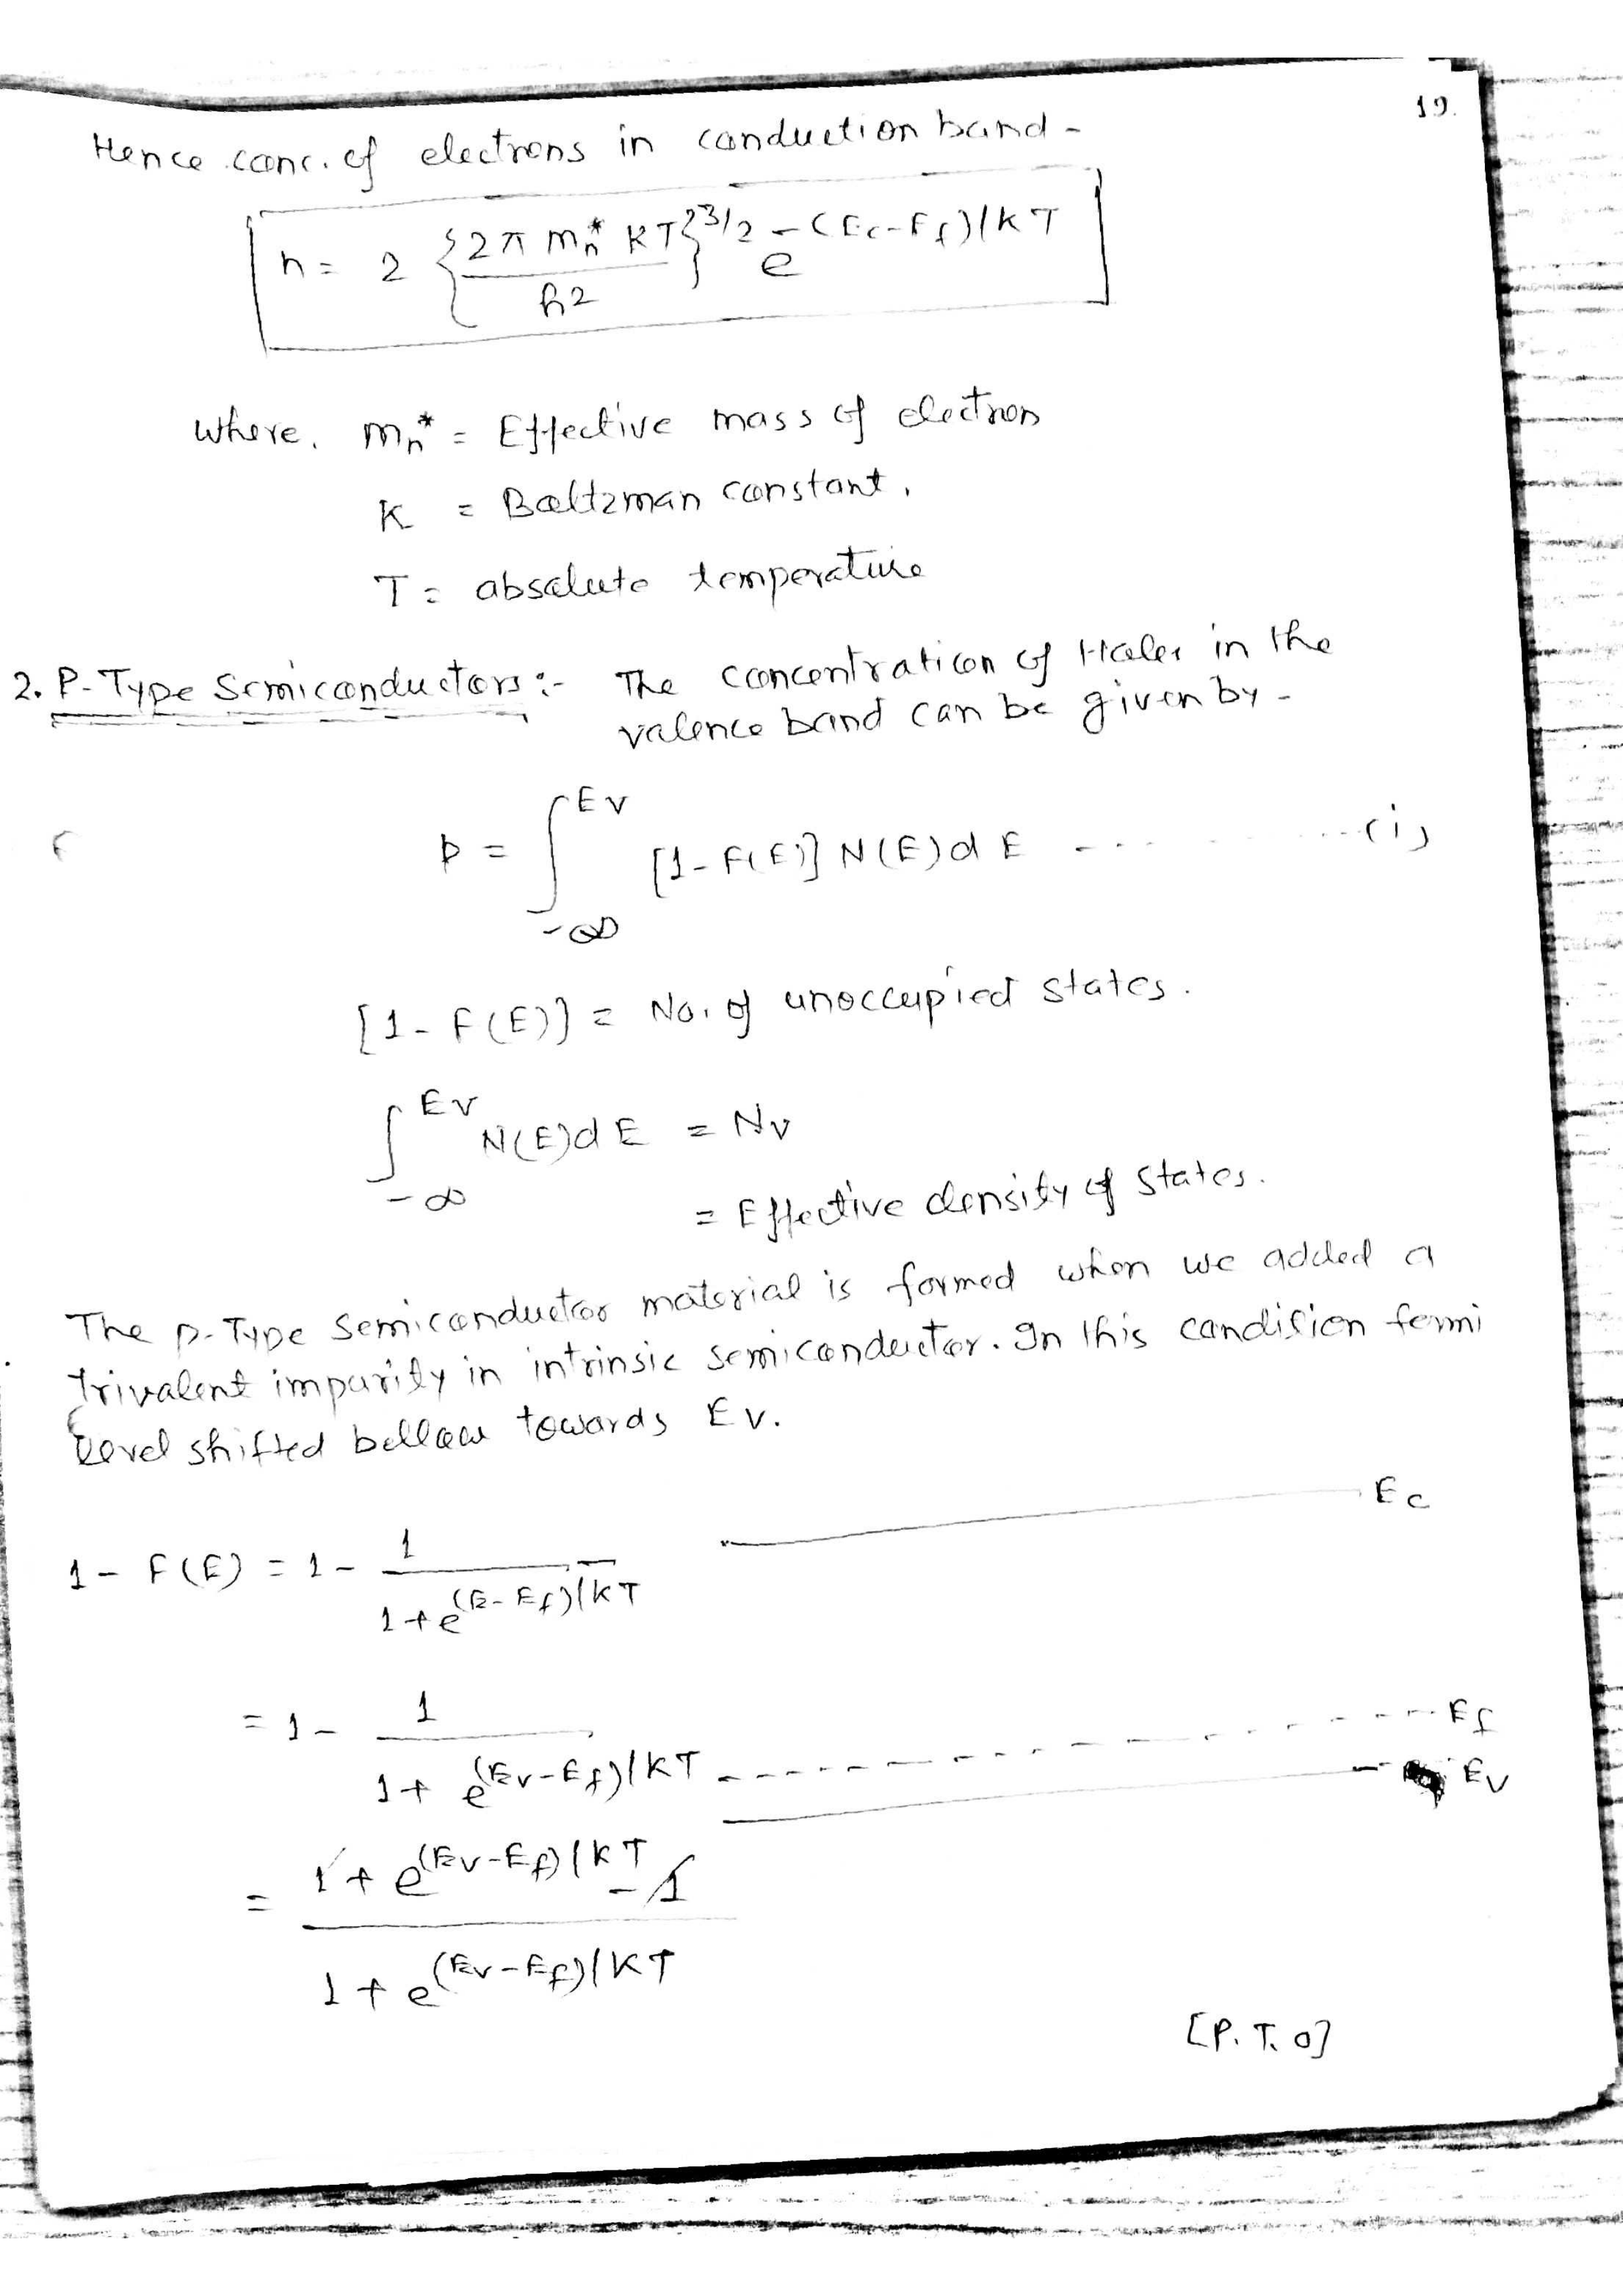 19.
Hence conc. of electrons in conduction band -
n = 2 {2π mn* KT / h2}3/2 e-(Ec-Ef)/KT
where, mn* = Effective mass of electron
K = Boltzman constant,
T = absolute temperature
2. P-Type Semiconductors :- The concentration of Holes in the
valence band can be given by -
p = ∫-∞Ev [1-F(E)] N(E)dE - - - ------(i)
[1-F(E)] = No. of unoccupied states.
∫-∞Ev N(E)dE = Nv
= Effective density of states.
The p-Type semiconductor material is formed when we added a
trivalent impurity in intrinsic semiconductor. In this condition fermi
level shifted bellow towards Ev.
Ec
1 - F(E) = 1 - 1 / 1+e(E-Ef)/KT
= 1 - 1 / 1+ e(Ev-Ef)/KT
Ef
Ev
= 1+e(Ev-Ef)/KT - 1 / 1+e(Ev-Ef)/KT
[P.T.O]